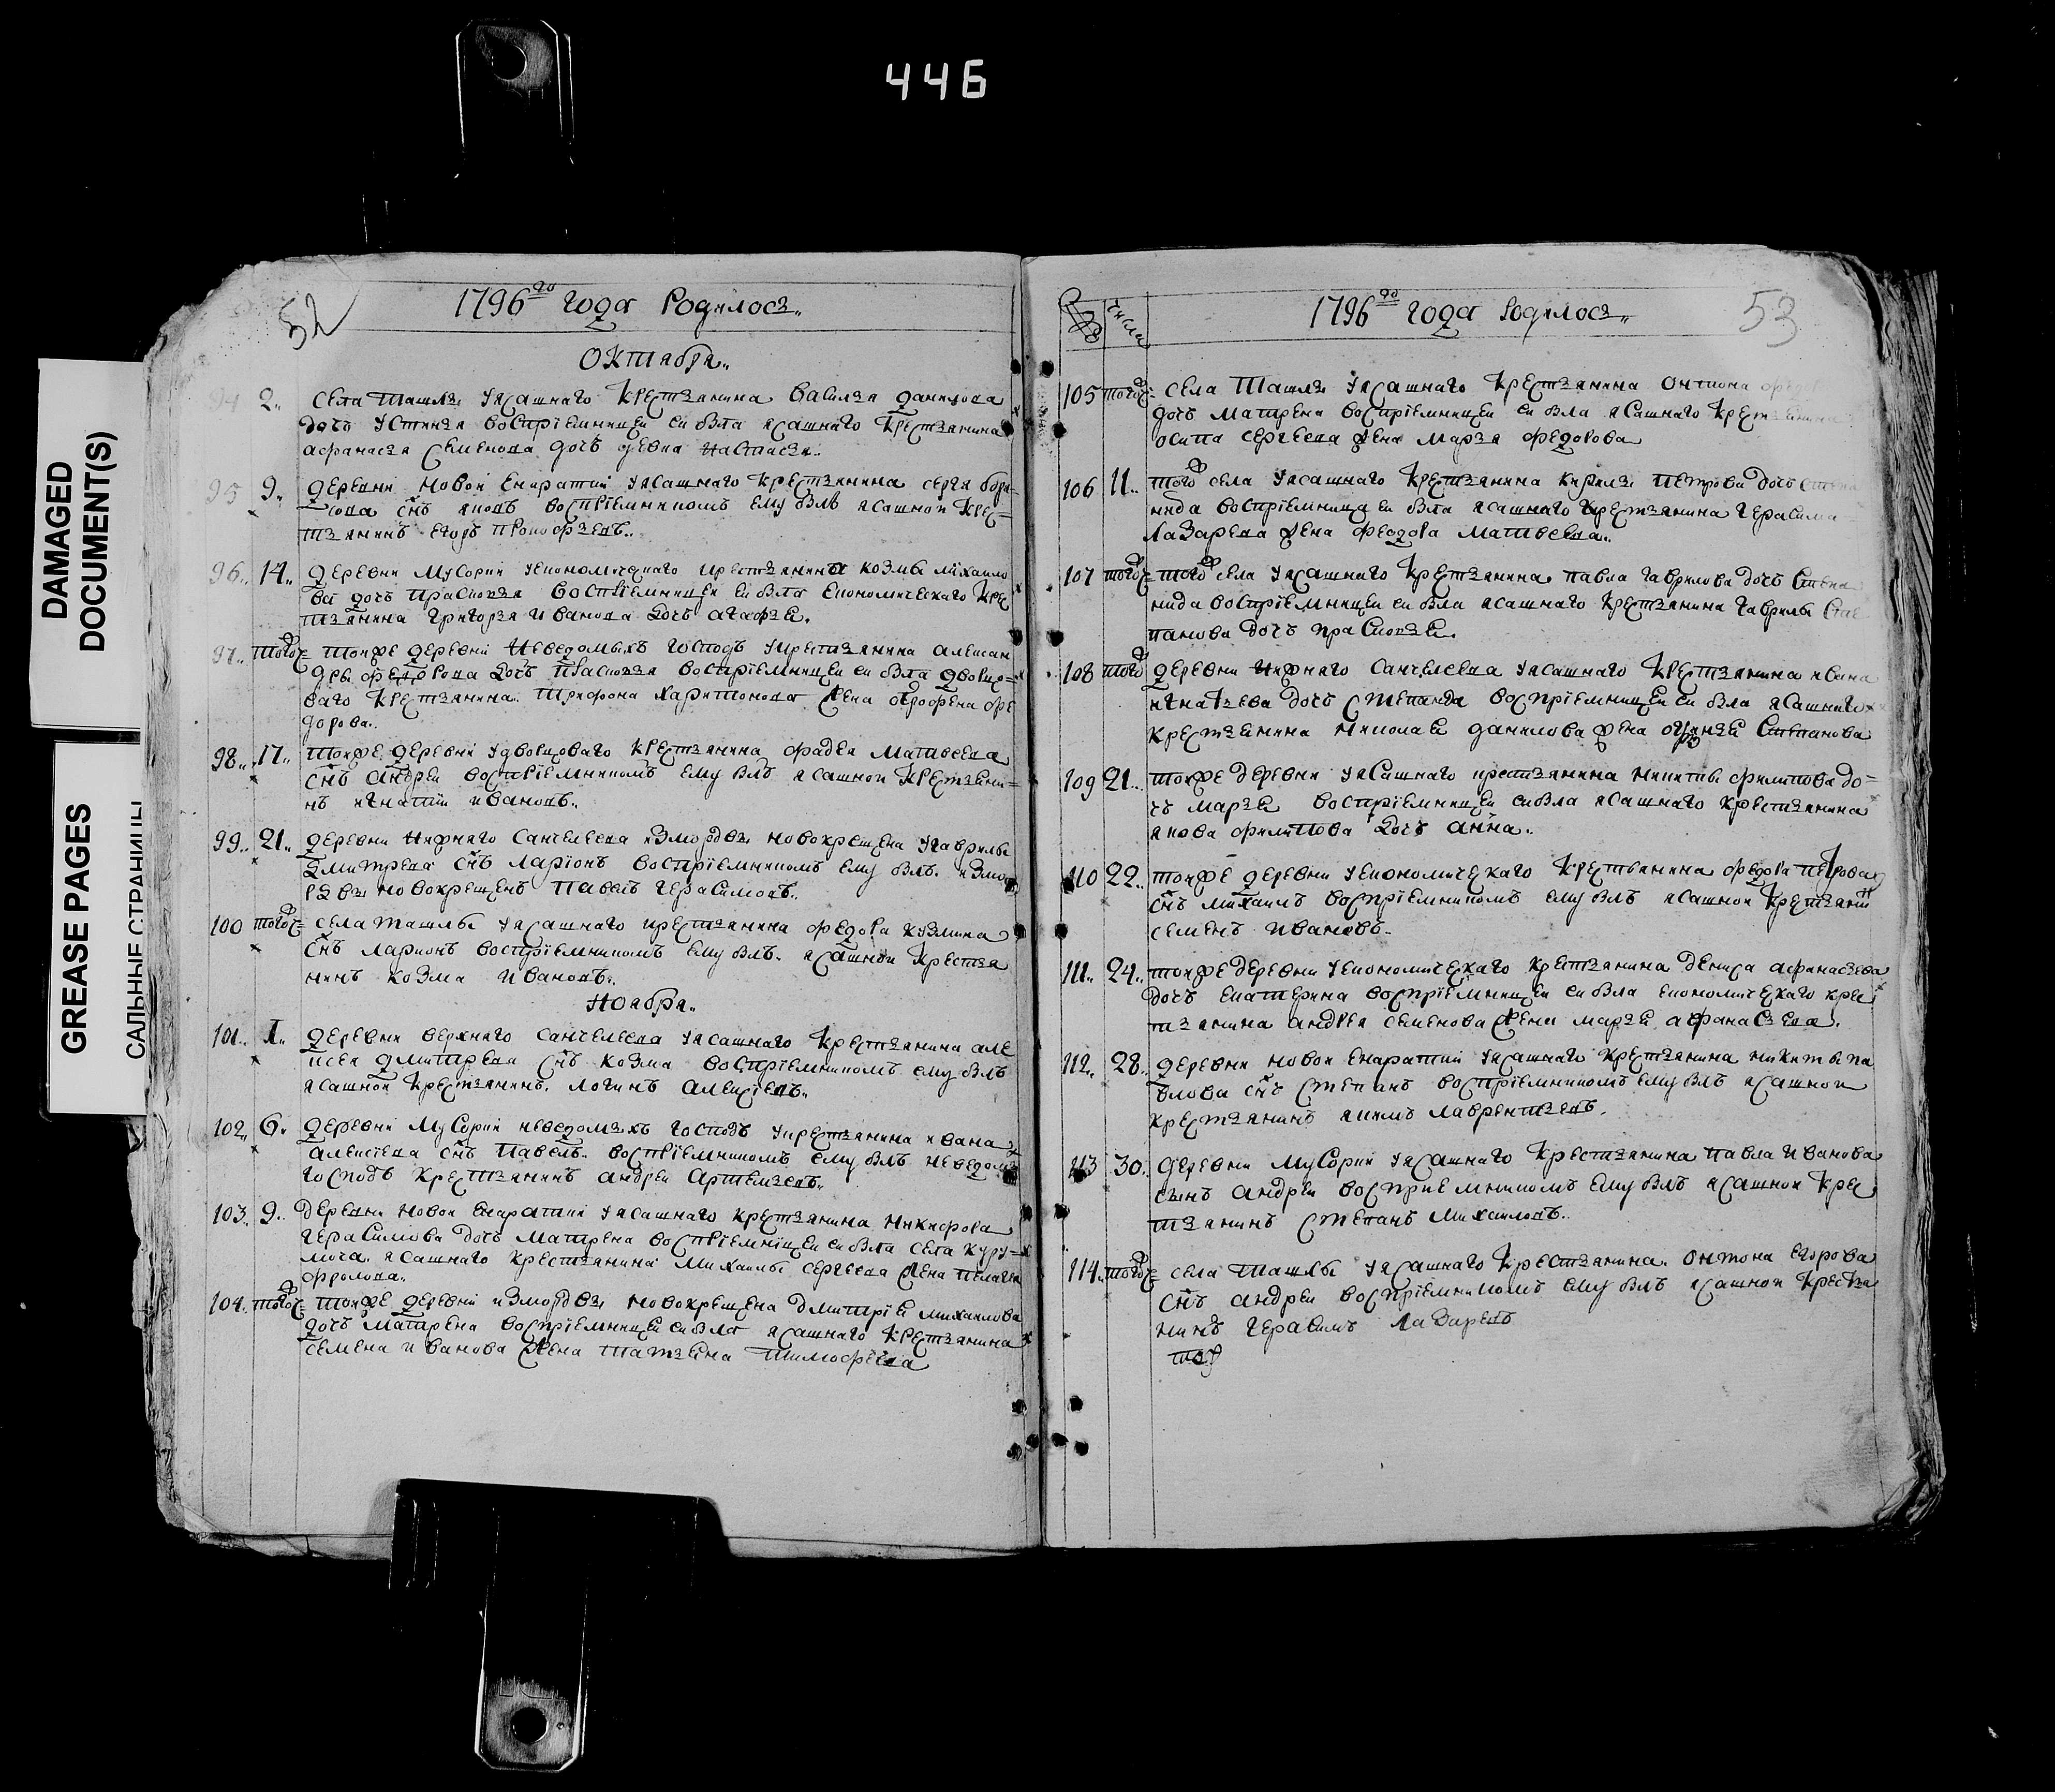 446
DAMAGED
DOCUMENT(S)
GREASE PAGES
САЛЬНЫЕ СТРАНИЦЫ
52
1796го года Родилось
Октября
94 2. села Ташлы уясашнаго крестьянина Василья данилова
дочь Устинья восприемницей ей была ясашнаго крестьянина
афанасья Семенова дочь девка настасья
95 9. деревни Новой Енаратки уясашнаго крестьянина сергея бори-
сова снъ яковъ восприемникомъ ему былъ ясашной крес-
тьянинъ Егоръ прокофьевъ
96. 14. деревни Мусорки уекономичнаго крестьянина козмы михаило
ва дочь прасковья восприемницей ей была Економическаго крес
тьянина григорья Иванова дочь агафья.
97. тогож тойже деревни Неведомыхъ господъ укрестьянина алексан
дры федорова дочь Прасковья восприемницей ей была дворцо-
ваго крестьянина. Трифона харитонова жена офрофена фе
дорова.
98. 17. тойже деревни удворцоваго крестьянина фадея Матвеева
снъ андрей восприемникомъ ему былъ ясашной крестьяни-
нъ игнатий ивановъ
99. 21. деревни Нижняго Санчелеева измордвы новокрещена угаврилы
дмитреева снъ ларионъ восприемникомъ ему былъ измо
рдвы новокрещенъ Павелъ герасимовъ
100 тогож села ташлы уясашнаго крестьянина федора кузмина
снъ ларионъ восприемникомъ ему былъ ясашной крестья
нинъ козма ивановъ
Ноября
101. 1. деревни верхняго санчелеева уясашнаго крестьянина але
ксея дмитреева снъ козма восприемникомъ ему былъ
ясашной крестьянинъ логинъ алексеевъ
102. 6. деревни Мусорки неведомыхъ господъ укрестьянина ивана
алексеева снъ Павелъ восприемникомъ ему былъ неведомы
господъ крестьянинъ андрей артемьевъ
103. 9. деревни новой Енаратки уясашнаго крестьянина Никифора
герасимова дочь матрена восприемницей ей была села куру-
моча ясашнаго крестьянина михаилы сергеева жена пелагея
фролова
104. тогож тойже деревни измордвы новокрещена дмитрия михаилова
дочь матрена восприемницей ей была ясашнаго крестьянина
семена иванова жена татьяна тимофеева
числа
1796го года Родилось
53
105 тогож села Ташлы уясашнаго крестьянина Онтиона
дочь матрена восприемницей ей была ясашнаго крестьянина
осипа сергеева жена марья федорова
106 11. тогож села уясашнаго крестьянина кирилы петрова дочь степа
нида восприемница ей была ясашнаго крестьянина герасима
лазарева жена феодора матвеева
107 тогож тогож села уясашнаго крестьянина павла гаврилова дочь степа
нида восприемницей ей была ясашнаго крестьянина гаврилы сте
панова дочь прасковья.
108 тогож деревни Нижняго Санчелеева уясашнаго крестьянина ивана
игнатьева дочь степанида восприемницей ей была ясашнаго
крестьянина николая данилова жена Степанова
109 21. тойже деревни уясашнаго крестьянина никиты филипова до-
чь марья восприемницей ей была ясашнаго крестьянина
якова филипова дочь анна.
110 22. тойже деревни уекономическаго крестьянина федора петрова
снъ михаилъ восприемникомъ ему былъ ясашной крестьяни
семенъ ивановъ
111. 24. тойже деревни уекономическаго крестьянина дениса афанасьева
дочь екатерина восприемницей ей была економическаго крес
тьянина андрея семенова жена марья афанасьева.
112. 28. деревни новой Енаратки уясашнаго крестьянина никиты па
влова снъ степанъ восприемникомъ ему былъ ясашной
крестьянинъ якимъ лаврентьевъ.
113 30. деревни Мусорки уясашнаго крестьянина павла иванова
сынъ андрей восприемникомъ ему былъ ясашной крес
тьянинъ степанъ михаиловъ
114. тогож села ташлы уясашнаго крестьянина онтона егорова
снъ андрей восприемникомъ ему былъ ясашной крестья
нинъ герасимъ лазаревъ